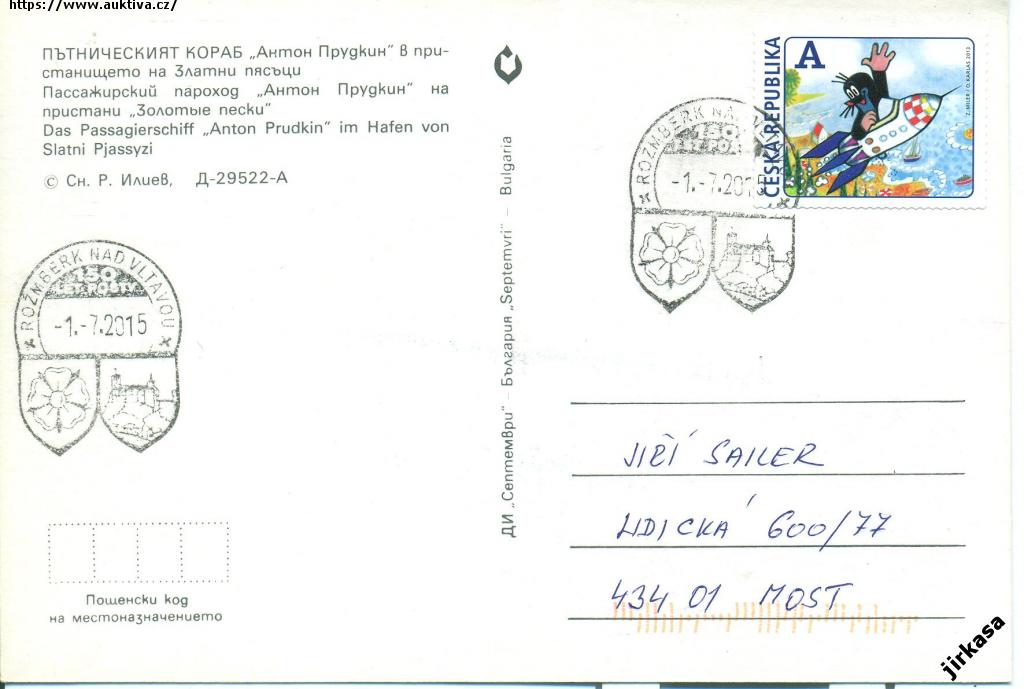 https://www.auktiva.cz/
ПЪТНИЧЕСКИЯТ КОРАБ „Антон Прудкин" в при-
станището на Златни пясъци
Пассажирский пароход „Антон Прудкин" на
пристани „Золотые пески"
Das Passagierschiff „Anton Prudkin" im Hafen von
Slatni Pjassyzi
© Сн. Р. Илиев, Д-29522-А
ROŽMBERK NAD VLTAVOU
150
LET POŠTY
-1.-7.2015
Пощенски код
на местоназначението
ДИ „Септември" – България „Septemvri" – Bulgaria
ROŽMBERK NAD
150
LET POŠTY
-1.-7.2015
ČESKÁ REPUBLIKA
A
Z. MILER / O. KARLAS 2013
JIŘÍ SAILER
LIDICKÁ 600/77
434 01 MOST
jirkasa